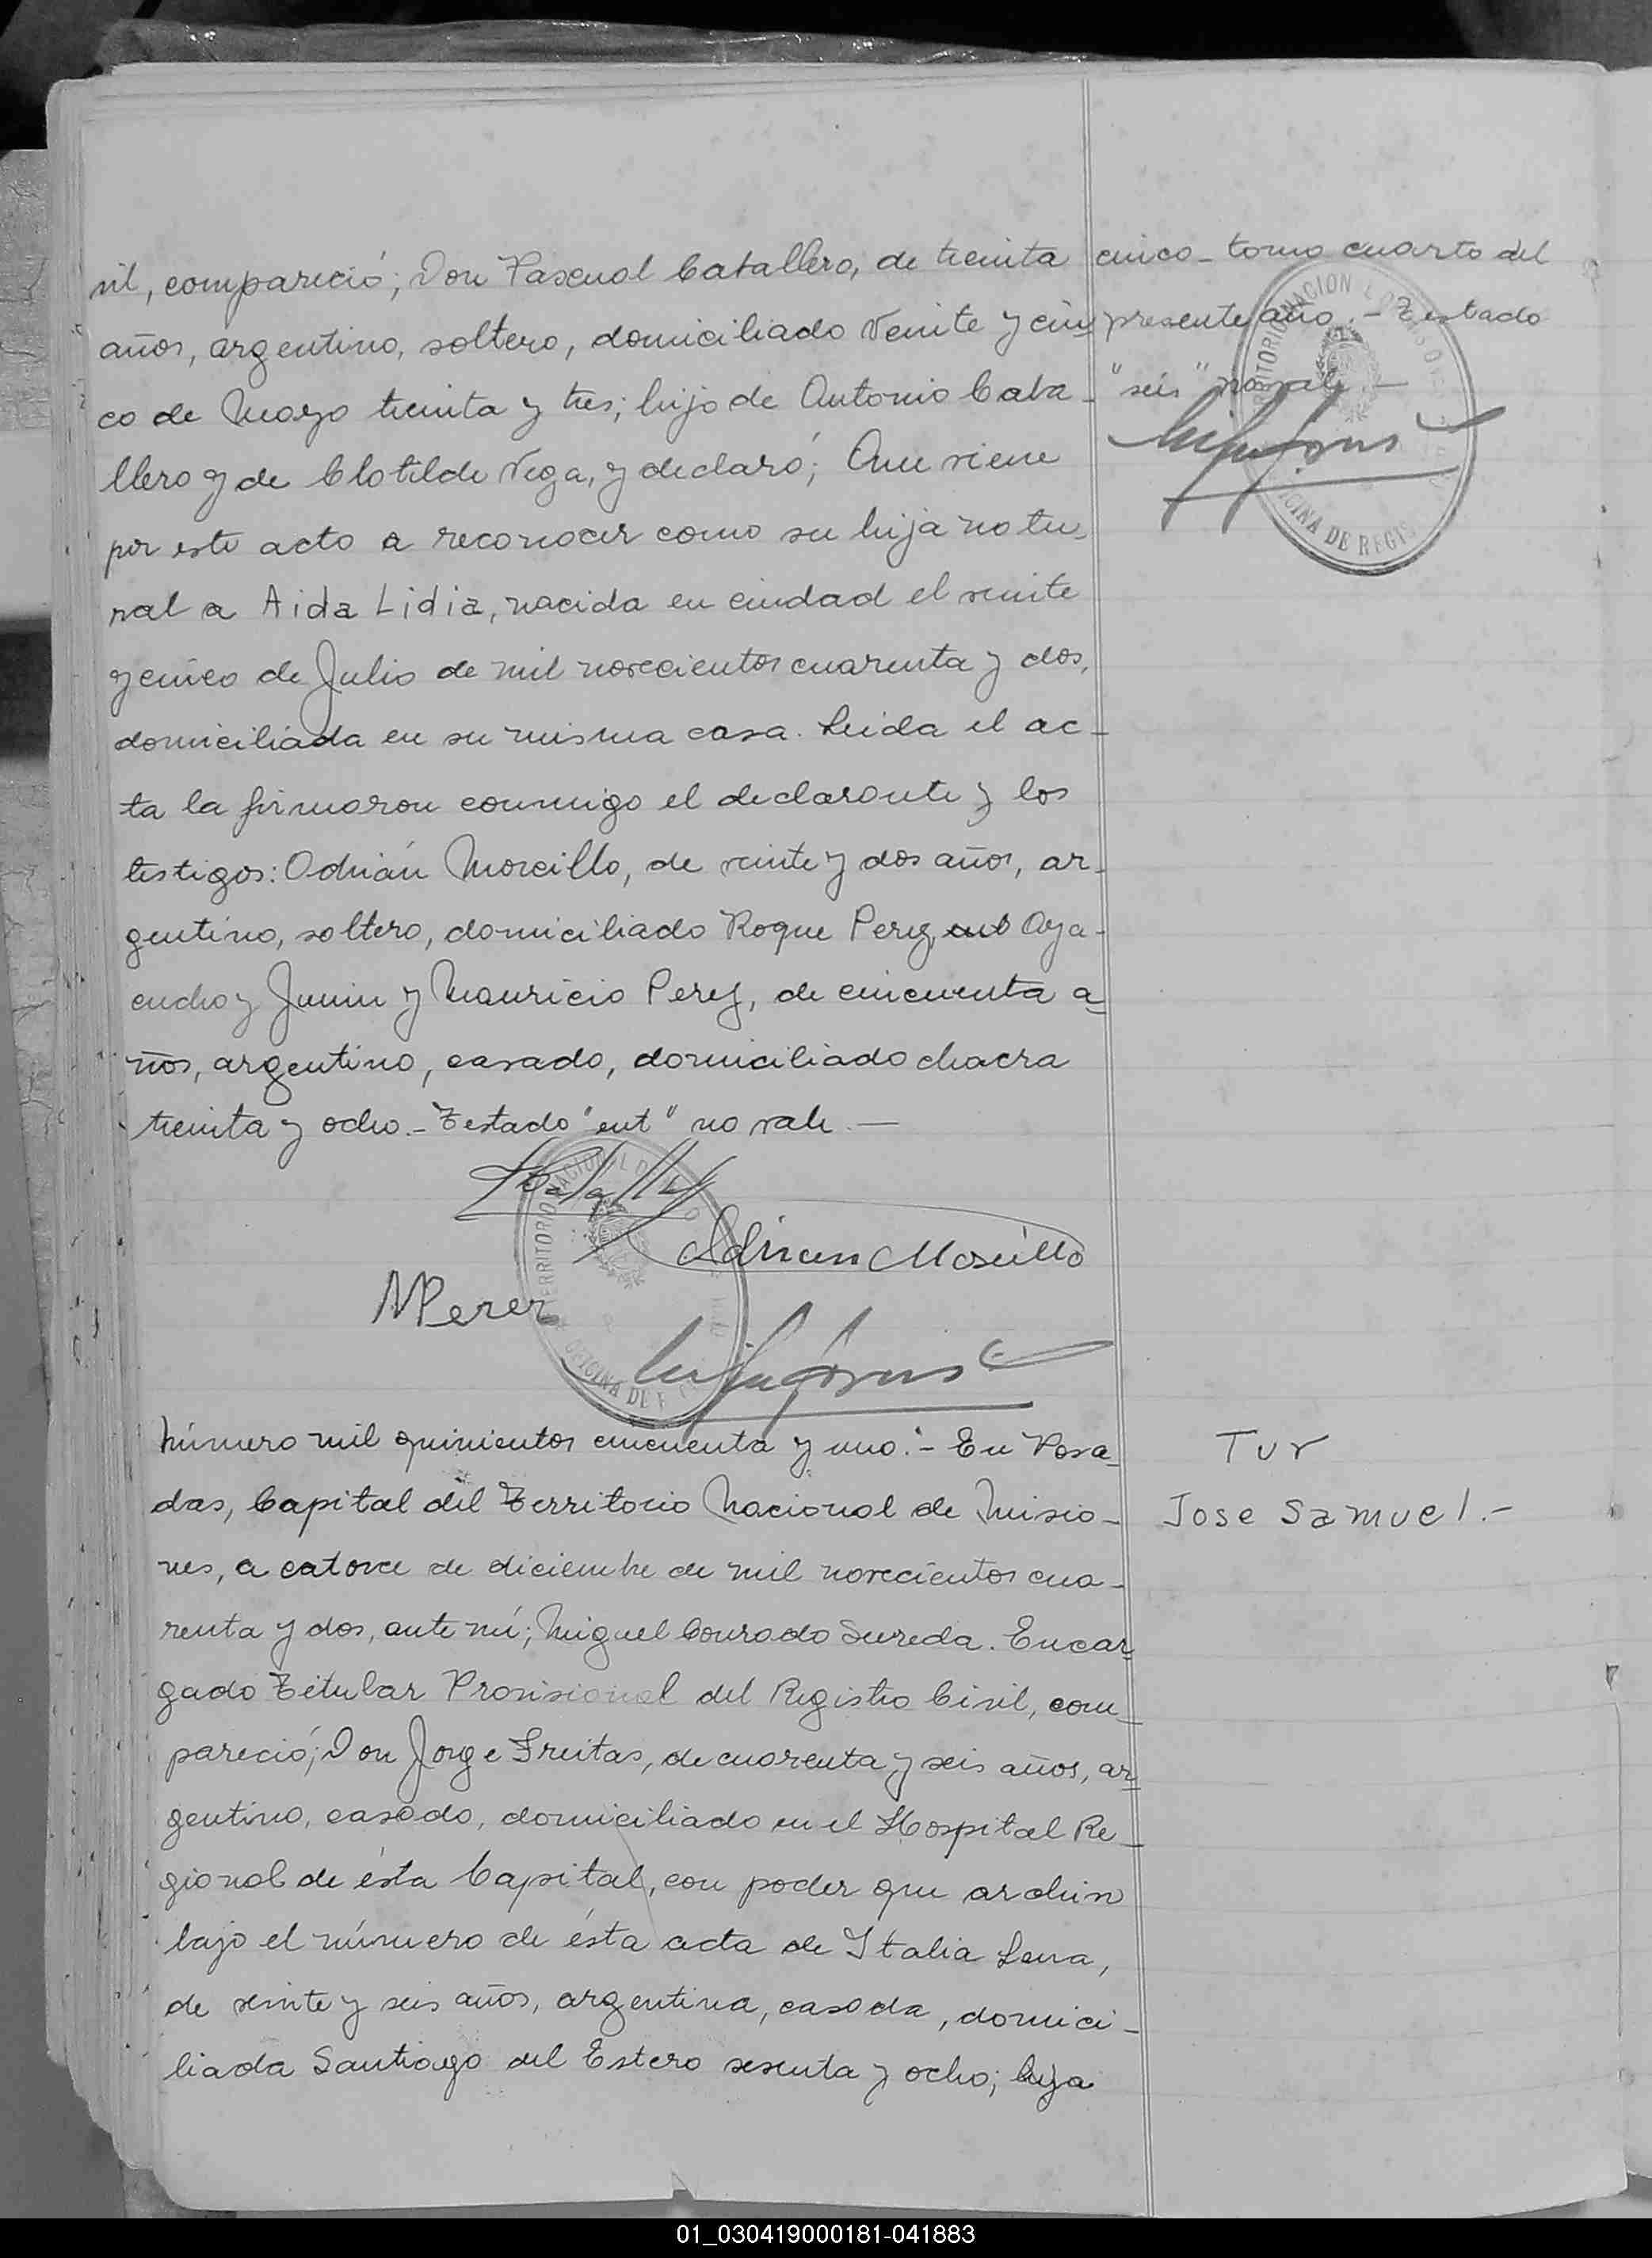 vil, compareció; Don Pascual Caballero, de treinta
años, argentino, soltero, domiciliado Veinte y cin
co de Mayo treinta y tres; hijo de Antonio Caba-
llero y de Clotilde Vega, y declaró; Que viene
por este acto a reconocer como su hija natu-
ral a Aida Lidia, nacida en ciudad el veinte
y cinco de Julio de mil novecientos cuarenta y dos,
domiciliada en su misma casa. Leida el ac-
ta la firmaron conmigo el declarante y los
testigos: Adrián Morcillo, de veinte y dos años, ar-
gentino, soltero, domiciliado Roque Perez, ent Aya-
cucho y Junin y Mauricio Perez, de cincuenta a-
ños, argentino, casado, domiciliado chacra
treinta y ocho.- Testado "ent" no vale.—
cinco - tomo cuarto del
presente año.- Testado
"seis" no vale —
TERRITORIO NACIONAL
OFICINA DE REGIS
Adrian Morcillo
MPerez
TERRITORIO NACIONAL DE
OFICINA DE
Número mil quinientos cincuenta y uno.- En Posa-
das, Capital del Territorio Nacional de Misio-
nes, a catorce de diciembre de mil novecientos cua-
renta y dos, ante mí; Miguel Conrado Sureda. Encar-
gado Titular Provisional del Registro Civil, com-
pareció; Don Jorge Freitas, de cuarenta y seis años, ar-
gentino, casado, domiciliado en el Hospital Re-
gional de ésta Capital, con poder que archivo
bajo el número de ésta acta de Italia Lena,
de veinte y seis años, argentina, casada, domici-
liada Santiago del Estero sesenta y ocho; hija
Tur
Jose Samuel.-
01_030419000181-041883